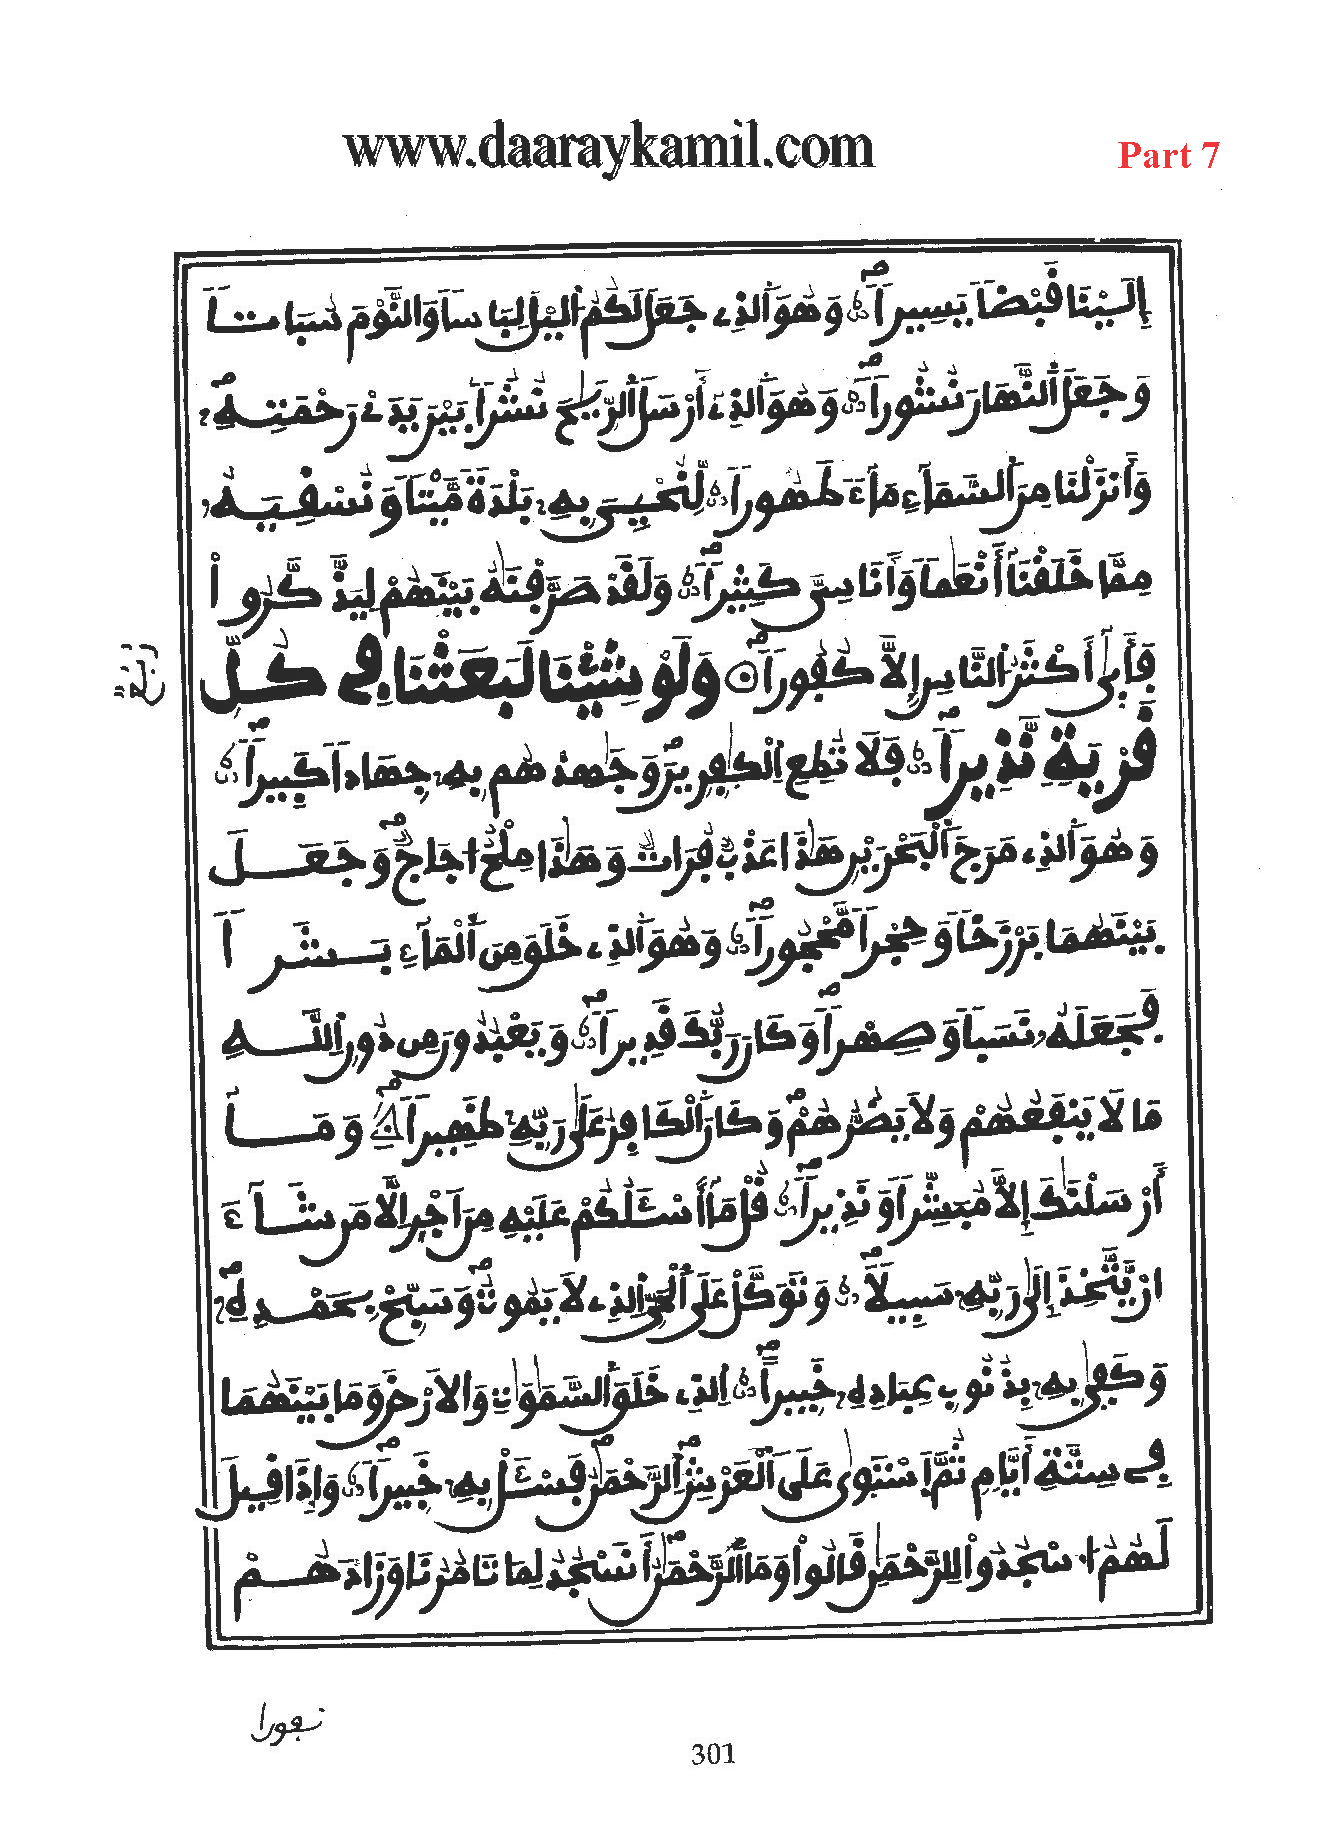 www.daaraykamil.com
Part 7
إِلَيْنَا قَبْضاً يَسِيراً وَهُوَ ٱلذِے جَعَلَ لَكُمُ ٱليْلَ لِبَاساً وَالنَّوْمَ سُبَاتاً
وَجَعَلَ ٱلنَّهَارَ نُشُوراً وَهُوَ ٱلذِے أَرْسَلَ ٱلرِّيَٰحَ نُشُراً بَيْنَ يَدَےْ رَحْمَتِهِۦ
وَأَنزَلْنَا مِنَ ٱلسَّمَآءِ مَآءً طَهُوراً لِّنُحْيِۦَ بِهِۦ بَلْدَةً مَّيْتاً وَنُسْقِيَهُۥ
مِمَّا خَلَقْنَآ أَنْعَٰماً وَأَنَاسِىَّ كَثِيراً وَلَقَدْ صَرَّفْنَٰهُ بَيْنَهُمْ لِيَذَّكَّرُواْ
فَأَبَىٰٓ أَكْثَرُ ٱلنَّاسِ إِلَّا كُفُوراً وَلَوْ شِئْنَا لَبَعَثْنَا فِے كُلِّ
رُبُع
قَرْيَةٍ نَّذِيراً فَلَا تُطِعِ اِلْكَٰفِرِينَ وَجَٰهِدْهُم بِهِۦ جِهَاداً كَبِيراً
وَهُوَ ٱلذِے مَرَجَ ٱلْبَحْرَيْنِ هَٰذَا عَذْبٌ فُرَاتٌ وَهَٰذَا مِلْحٌ اجَاجٌ وَجَعَلَ
بَيْنَهُمَا بَرْزَخاً وَحِجْراً مَّحْجُوراً وَهُوَ ٱلذِے خَلَقَ مِنَ ٱلْمَآءِ بَشَراً
فَجَعَلَهُۥ نَسَباً وَصِهْراً وَكَانَ رَبُّكَ قَدِيراً وَيَعْبُدُونَ مِن دُونِ اِللَّهِ
مَا لَا يَنفَعُهُمْ وَلَا يَضُرُّهُمْ وَكَانَ ٱلْكَافِرُ عَلَىٰ رَبِّهِۦ ظَهِيراً وَمَآ
أَرْسَلْنَٰكَ إِلَّا مُبَشِّراً وَنَذِيراً قُلْ مَآ أَسْـَٔلُكُمْ عَلَيْهِ مِنَ اَجْرٍ اِلَّا مَن شَآءَ
انْ يَّتَّخِذَ إِلَىٰ رَبِّهِۦ سَبِيلاً وَتَوَكَّلْ عَلَى ٱلْحَيِّ اِلذِے لَا يَمُوتُ وَسَبِّحْ بِحَمْدِهِۦ
وَكَفَىٰ بِهِۦ بِذُنُوبِ عِبَادِهِۦ خَبِيراً اِلذِے خَلَقَ ٱلسَّمَٰوَٰتِ وَالَارْضَ وَمَا بَيْنَهُمَا
فِے سِتَّةِ أَيَّامٍ ثُمَّ اَسْتَوَىٰ عَلَى ٱلْعَرْشِ اِلرَّحْمَٰنُ فَسْـَٔلْ بِهِۦ خَبِيراً وَإِذَا قِيلَ
لَهُمُ اُسْجُدُواْ لِلرَّحْمَٰنِ قَالُواْ وَمَا ٱلرَّحْمَٰنُ أَنَسْجُدُ لِمَا تَامُرُنَا وَزَادَهُمْ
نفورا
301